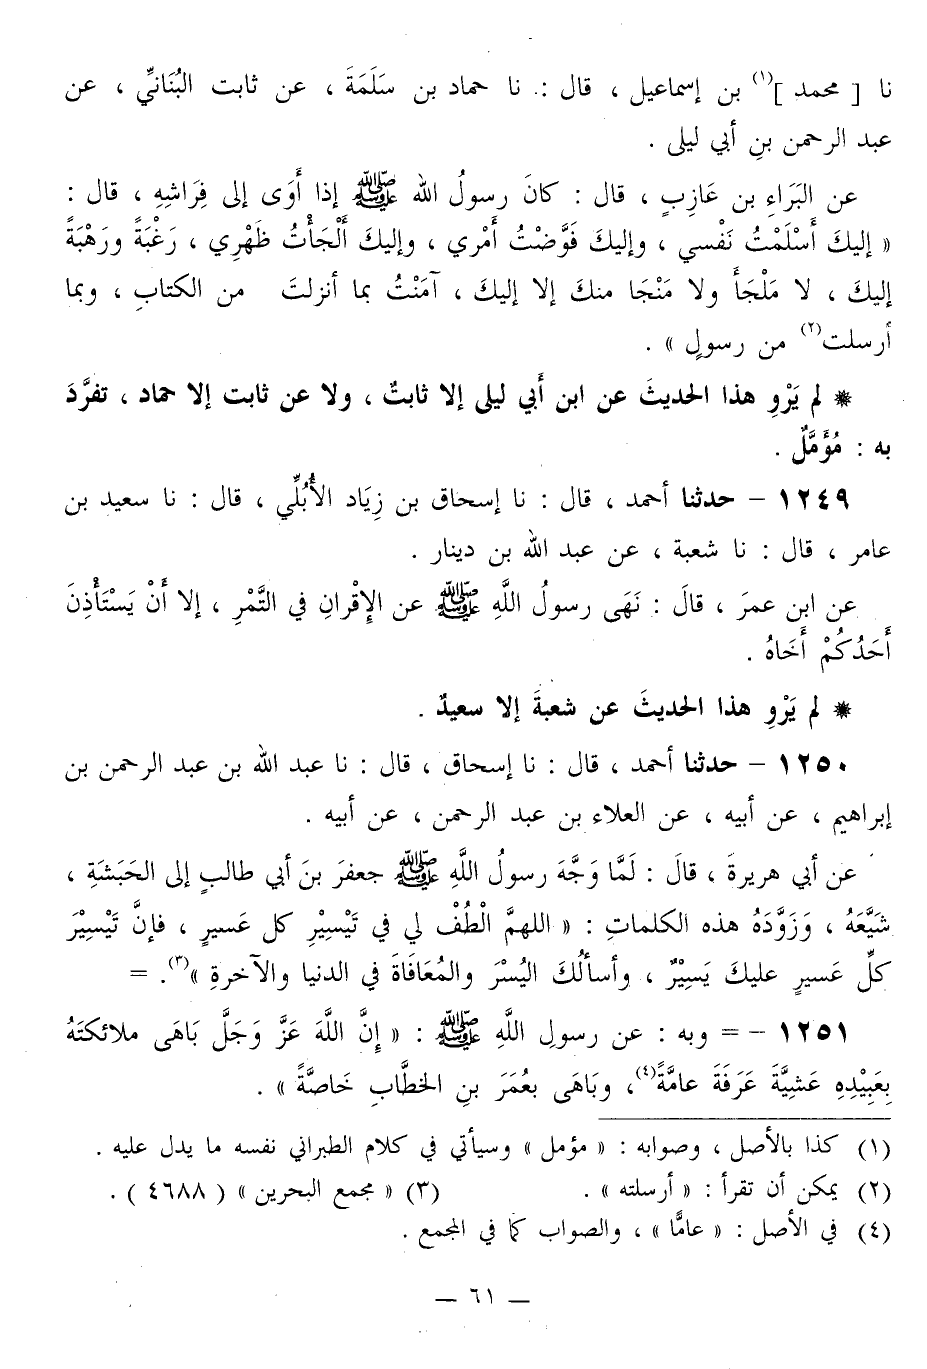 نا [ محمد ](١) بن إسماعيل ، قال : نا حماد بن سَلَمَةَ ، عن ثابت البُنَانيِّ ، عن
عبد الرحمن بنِ أبي ليلى .
عن البَرَاءِ بن عَازِبٍ ، قال : كانَ رسولُ الله ﷺ إذا أَوَى إلى فِرَاشِهِ ، قال :
« إليكَ أَسْلَمْتُ نَفْسي ، وإليكَ فَوَّضْتُ أَمْري ، وإليكَ أَلْجَأْتُ ظَهْرِي ، رَغْبَةً ورَهْبَةً
إليكَ ، لا مَلْجَأَ ولا مَنْجَا منكَ إلا إليكَ ، آمَنْتُ بما أنزلتَ من الكتابِ ، وبما
أرسلت(٢) من رسولٍ » .
* لم يَرْوِ هذا الحديثَ عن ابن أَبي ليلى إلا ثابتٌ ، ولا عن ثابت إلا حماد ، تفرَّدَ
به : مُؤَمَّلٌ .
١٢٤٩ – حدثنا أحمد ، قال : نا إسحاق بن زِيَاد الأُبُلِّي ، قال : نا سعيد بن
عامر ، قال : نا شعبة ، عن عبد الله بن دينار .
عن ابن عمرَ ، قالَ : نَهَى رسولُ اللَّهِ ﷺ عن الإِقْرانِ في التَّمْرِ ، إلا أَنْ يَسْتَأْذِنَ
أَحَدُكُمْ أَخَاهُ .
* لم يَرْوِ هذا الحديثَ عن شعبةَ إلا سعيدٌ .
١٢٥٠ – حدثنا أحمد ، قال : نا إسحاق ، قال : نا عبد الله بن عبد الرحمن بن
إبراهيم ، عن أبيه ، عن العلاء بن عبد الرحمن ، عن أبيه .
عن أبي هريرةَ ، قالَ : لَمَّا وَجَّهَ رسولُ اللَّهِ ﷺ جعفرَ بنَ أبي طالبٍ إلى الحَبَشَةِ ،
شَيَّعَهُ ، وَزَوَّدَهُ هذه الكلماتِ : « اللهمَّ الْطُفْ لي في تَيْسِيْرِ كل عَسيرٍ ، فإنَّ تَيْسِيْرَ
كلِّ عَسيرٍ عليكَ يَسِيْرٌ ، وأسألُكَ اليُسْرَ والمُعَافَاةَ في الدنيا والآخرةِ »(٣). =
١٢٥١ – = وبه : عن رسولِ اللَّهِ ﷺ : « إِنَّ اللَّهَ عَزَّ وَجَلَّ بَاهَى ملائكتَهُ
بِعَبِيْدِهِ عَشِيَّةَ عَرَفَةَ عامَّةً(٤)، وبَاهَى بعُمَرَ بنِ الخطَّابِ خَاصَّةً » .
(١) كذا بالأصل ، وصوابه : « مؤمل » وسيأتي في كلام الطبراني نفسه ما يدل عليه .
(٢) يمكن أن تقرأ : « أرسلته » . (٣) « مجمع البحرين » ( ٤٦٨٨ ) .
(٤) في الأصل : « عامًّا » ، والصواب كما في المجمع .
— ٦١ —